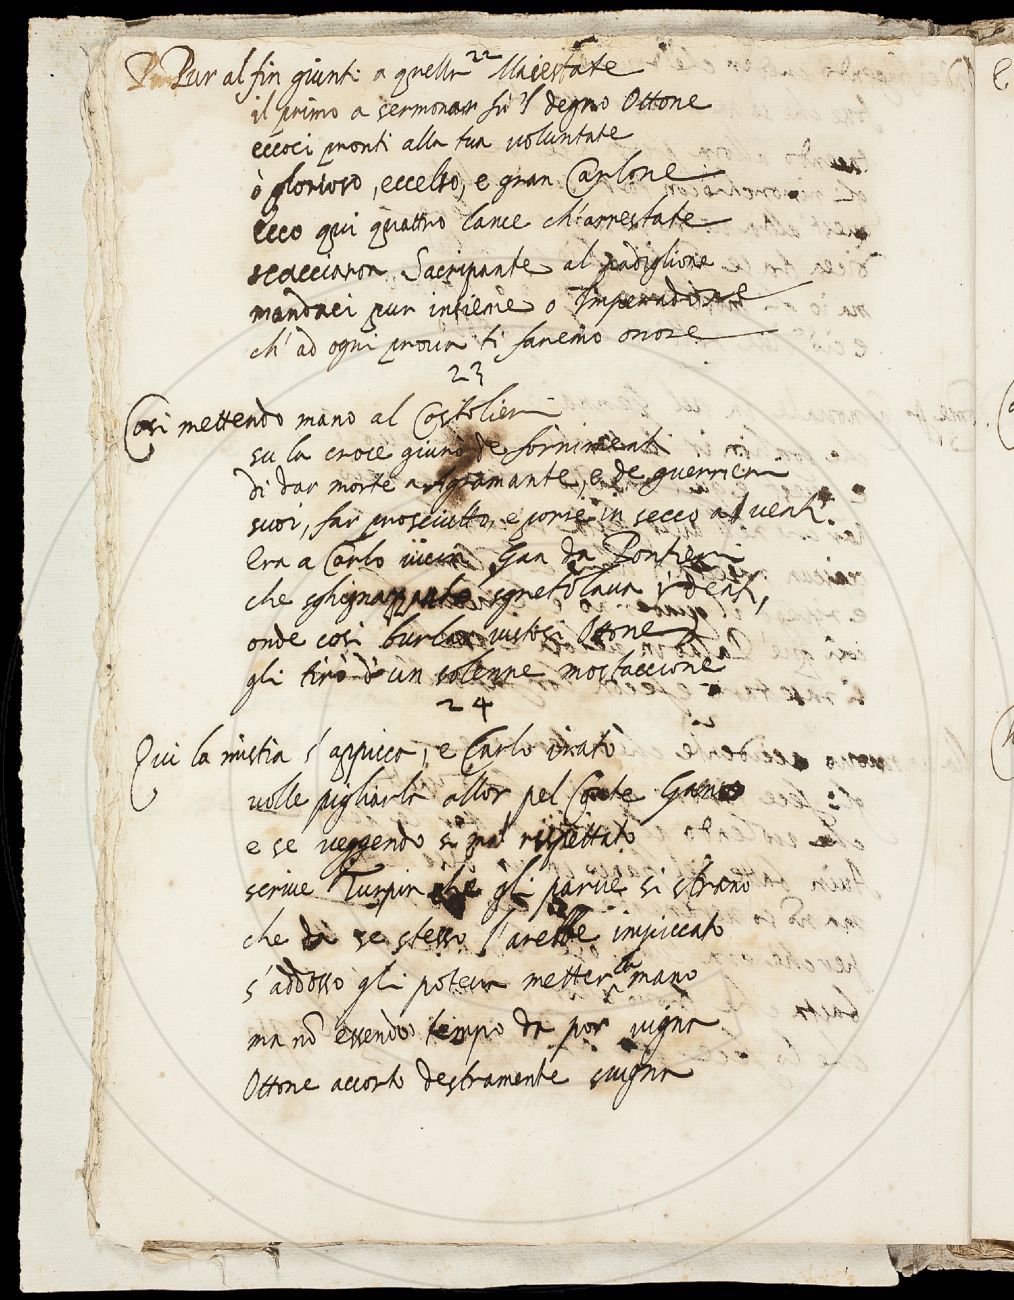 22
Pur al fin giunti a quella Maiestate
il primo a sermonar fù 'l degno Ottone
eccoci pronti alla tua voluntate
ò glorioso, eccelso, e gran Carlone
Ecco qui quattro lance ch'arrestate
scacciaron Sacripante al padiglione
mandaci pur insieme o Imperadore
ch'ad ogni prova ti faremo onore
23
Cosi mettendo mano al Costolier
su la croce giurò de fornimenti
di dar morte a Agramante, e de guerrieri
suoi, far prosciutto, e porre in secco a i venti.
Era a Carlo vicin Gan da Pontieri
che sghignazzando sgretolava i denti,
onde cosi burlar vistosi Ottone
gli tirò d'un solenne mostaccione
24
Qui la mistia s'appicca, e Carlo irato
volle pigliarla allor pel Conte Gano
e se veggendo si mal rispettato
scrive Turpin che gli parve si strano
che da se stesso l'arebbe impiccato
s'addosso gli poteva metter la mano
ma nō essendo tempo da por vigna
Ottone accorto destramente svigna